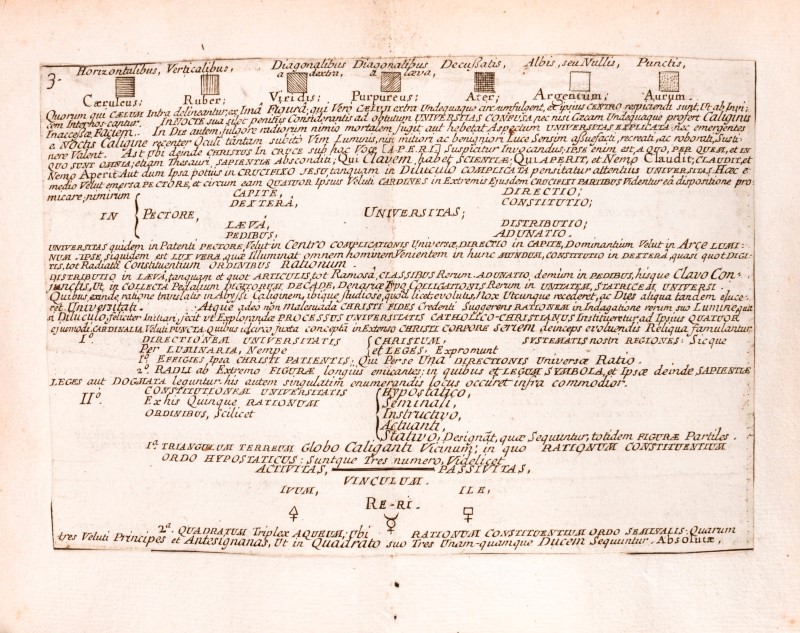 3. Horizontalibus, Verticalibus, Diagonalibus a dextra, Diagonalibus a læva, Decussatis, Albis, seu Nullis, Punctis,
Cæruleus: Ruber; Viridis; Purpureus; Ater; Argentum; Aurum.
Quorum qui CÆLUM Intra delineantur, ex Ima FIGURA, qui Vero CÆLUM extra Undequaque circumfulgent, et ipsius CENTRO respiciendi sunt, Ut ab
IN NOCTE sua UNIVERSITAS CONFUSA nec nisi Cæcam Undequaque profert Caliginis
Inaccessæ Faciem. In Die autem, fulgore radiorum nimio mortalem, Aspectum UNIVERSITAS EXPLICATA, hæc emergentes
e NOCTIS Caligine recenter Oculi tantam subito Vim Luminis, nisi mitiori ac benigniori Luce Sensim assuefacti, recreati, ac roborati, Susti-
nere Valent. Ast Ubi deinde CHRISTUS in CRUCE sub hac Voce [APERI] Iste enim est, A QUO, PER QUEM, et IN
QUO SUNT OMNIA, etiam Thesauri SAPIENTIÆ Absconditi; Qui Clavem habet SCIENTIÆ; Qui APERIT, et Nemo Claudit; CLAUDIT, et
Nemo Aperit Aut dum Ipsa potius in CRUCIFIXO JESU, tanquam in Diluculo COMPLICATA pensitatur attentius UNIVERSITAS. Hæc e
medio Velut emersa PECTORE, et circum eam QUATUOR Ipsius Veluti CARDINES in Extremis Ejusdem CRUCIFIXI PARTIBUS Videntur ea dispositione pro
micare, nimirum CAPITE, DIRECTIO;
DEXTERA, CONSTITUTIO;
IN PECTORE, UNIVERSITAS;
LÆVA, DISTRIBUTIO;
PEDIBUS, ADUNATIO.
UNIVERSITAS quidem in Patenti PECTORE, Velut in Centro COMPLICATIONIS Universæ, DIRECTIO in CAPITE, Dominantium Velut in Arce LUMI-
NUM. IPSE siquidem est LUX VERA, quæ Illuminat omnem hominem Venientem in hunc MUNDUM, CONSTITUTIO in DEXTERA, quasi quot DIGI-
TIS, tot Radiata Constituentium ORDINIBUS Rationum.
DISTRIBUTIO in LÆVA, tanquam et quot ARTICULIS, tot Ramosa, CLASSIBUS Rerum. ADUNATIO, demum in PEDIBUS, hisque Clavo Con-
junctis, Ut in COLLECTA Pedalium DIGITORUM DECADE, Denariæ Typo COLLIGATIONIS Rerum in UNITATEM, STATRICEM UNIVERSI.
Quibus exinde ratione involatis in Abyssi Caliginem, ibique studiose, quoad licet evolutis, Nox Utcunque recederet, ac Dies aliqua tandem eluce-
ret Universitati. Atque adeo non malesuada CHRISTI FIDES Credenti Suggerens RATIONEM in Indagatione rerum suo Lumine, quasi
in Diluculo feliciter Initiari, jam Vel Explanandæ PROCESSUS UNIVERSITATIS CATHOLICO-CHRISTIANUS Instigeretur, ad Ipsius QUATUOR
ejusmodi CARDINALIA Veluti PUNCTA. quibus idcirco juxta concepta in Extenso CHRISTI CORPORE Seriem deinceps evoluendis Reliqua famulantur.
I.º DIRECTIONEM UNIVERSITATIS CHRISTUM, SYSTEMATIS nostri REGIONES: Sicque
Per LUMINARIA, Nempe et LEGES; Expromunt
1.º EFFIGIES, Ipsa CHRISTI PATIENTIS: Qui Per se Una DIRECTIONIS Universæ Ratio.
2.º RADII ab Extremo FIGURÆ longius emicantes; in quibus et LEGUM SYMBOLA, et Ipsæ deinde SAPIENTIÆ
LEGES aut DOGMATA leguntur. his autem singulatim enumerandis locus occuret infra commodior.
II.º CONSTITUTIONEM UNIVERSITATIS Hypostatico,
Ex his Quinque RATIONUM Seminali,
ORDINIBUS, Scilicet Instructivo,
Actuanti,
Stativo, Designat, quæ Sequuntur, totidem FIGURÆ Partiles.
1.ª TRIANGULUM TERREUM Globo Caliganti Vicinum; in quo RATIONUM CONSTITUENTIUM
ORDO HYPOSTATICUS: Suntque Tres numero, Videlicet
ACTIVITAS, PASSIVITAS,
VINCULUM.
IVUM, ILE,
RE-RI.
2.ª QUADRATUM Triplex AQUEUM; Ubi RATIONUM CONSTITUENTIUM ORDO SEMINALIS: Quarum
tres Veluti Principes et Antesignanas, Ut in Quadrato suo Tres Unam-quamque Ducem Sequuntur. Absolutæ,